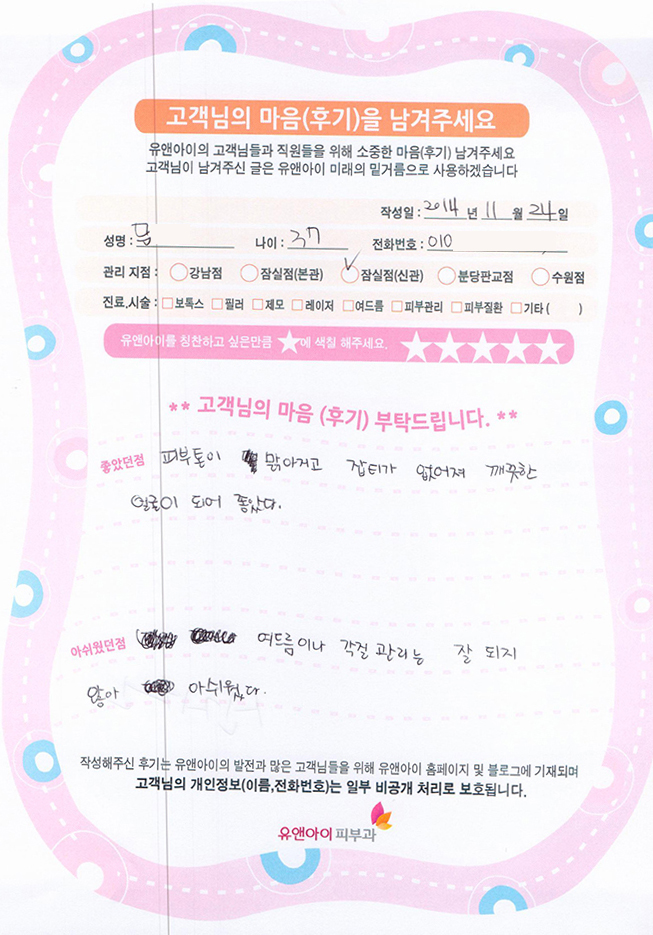 고객님의 마음(후기)을 남겨주세요
유앤아이의 고객님들과 직원들을 위해 소중한 마음(후기) 남겨주세요
고객님이 남겨주신 글은 유앤아이 미래의 밑거름으로 사용하겠습니다
작성일 : 2014 년 11 월 24 일
성명 : 나이 : 37 전화번호 : 010
관리 지점 : 강남점 잠실점(본관) 잠실점(신관) 분당판교점 수원점
진료,시술 : 보톡스 필러 제모 레이저 여드름 피부관리 피부질환 기타 ( )
유앤아이를 칭찬하고 싶은만큼 ★에 색칠 해주세요. ★★★★★
** 고객님의 마음 (후기) 부탁드립니다. **
좋았던점 피부톤이 맑아지고 잡티가 없어져 깨끗한
얼굴이 되어 좋았다.
아쉬웠던점 여드름이나 각질 관리는 잘 되지
않아 아쉬웠다.
작성해주신 후기는 유앤아이의 발전과 많은 고객님들을 위해 유앤아이 홈페이지 및 블로그에 기재되며
고객님의 개인정보(이름,전화번호)는 일부 비공개 처리로 보호됩니다.
유앤아이 피부과